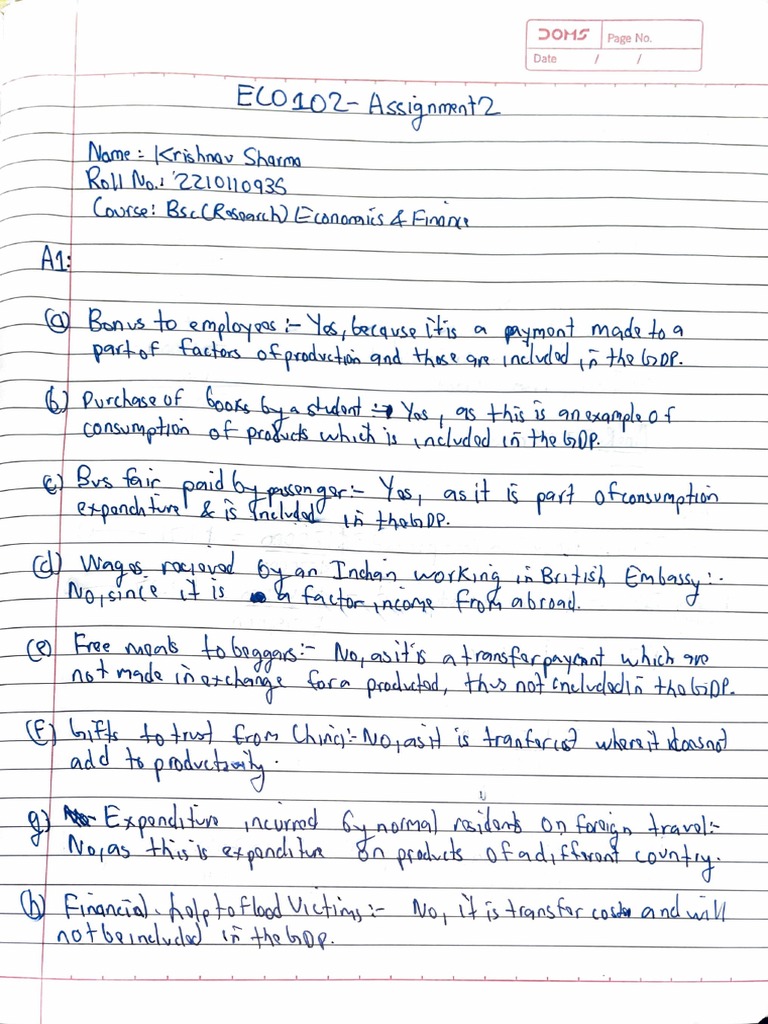 DOMS
Page No.
Date / /
ECO102 - Assignment 2
Name : Krishnav Sharma
Roll No. : 2210110935
Course: Bsc(Research) Economics & Finance
A1:
(a) Bonus to employees :- Yes, because it is a payment made to a
part of factors of production and those are included in the GDP.
(b) Purchase of books by a student :- Yes, as this is an example of
consumption of products which is included in the GDP.
c) Bus fair paid by passenger:- Yes, as it is part of consumption
expenditure & is included in the GDP.
(d) Wages recieved by an Indian working in British Embassy:-
No, since it is a factor income from abroad.
(e) Free meals to beggars:- No, as it's a transfer payment which are
not made in exchange for a producted, thus not included in the GDP.
(F) Gifts to trust from China:- No, as it is tranfer cost where it does not
add to productivity.
g) Expenditure incurred by normal residents on foreign travel:-
No, as this is expenditure on products of a different country.
(h) Financial help to flood Victims:- No, it is transfer cost and will
not be included in the GDP.